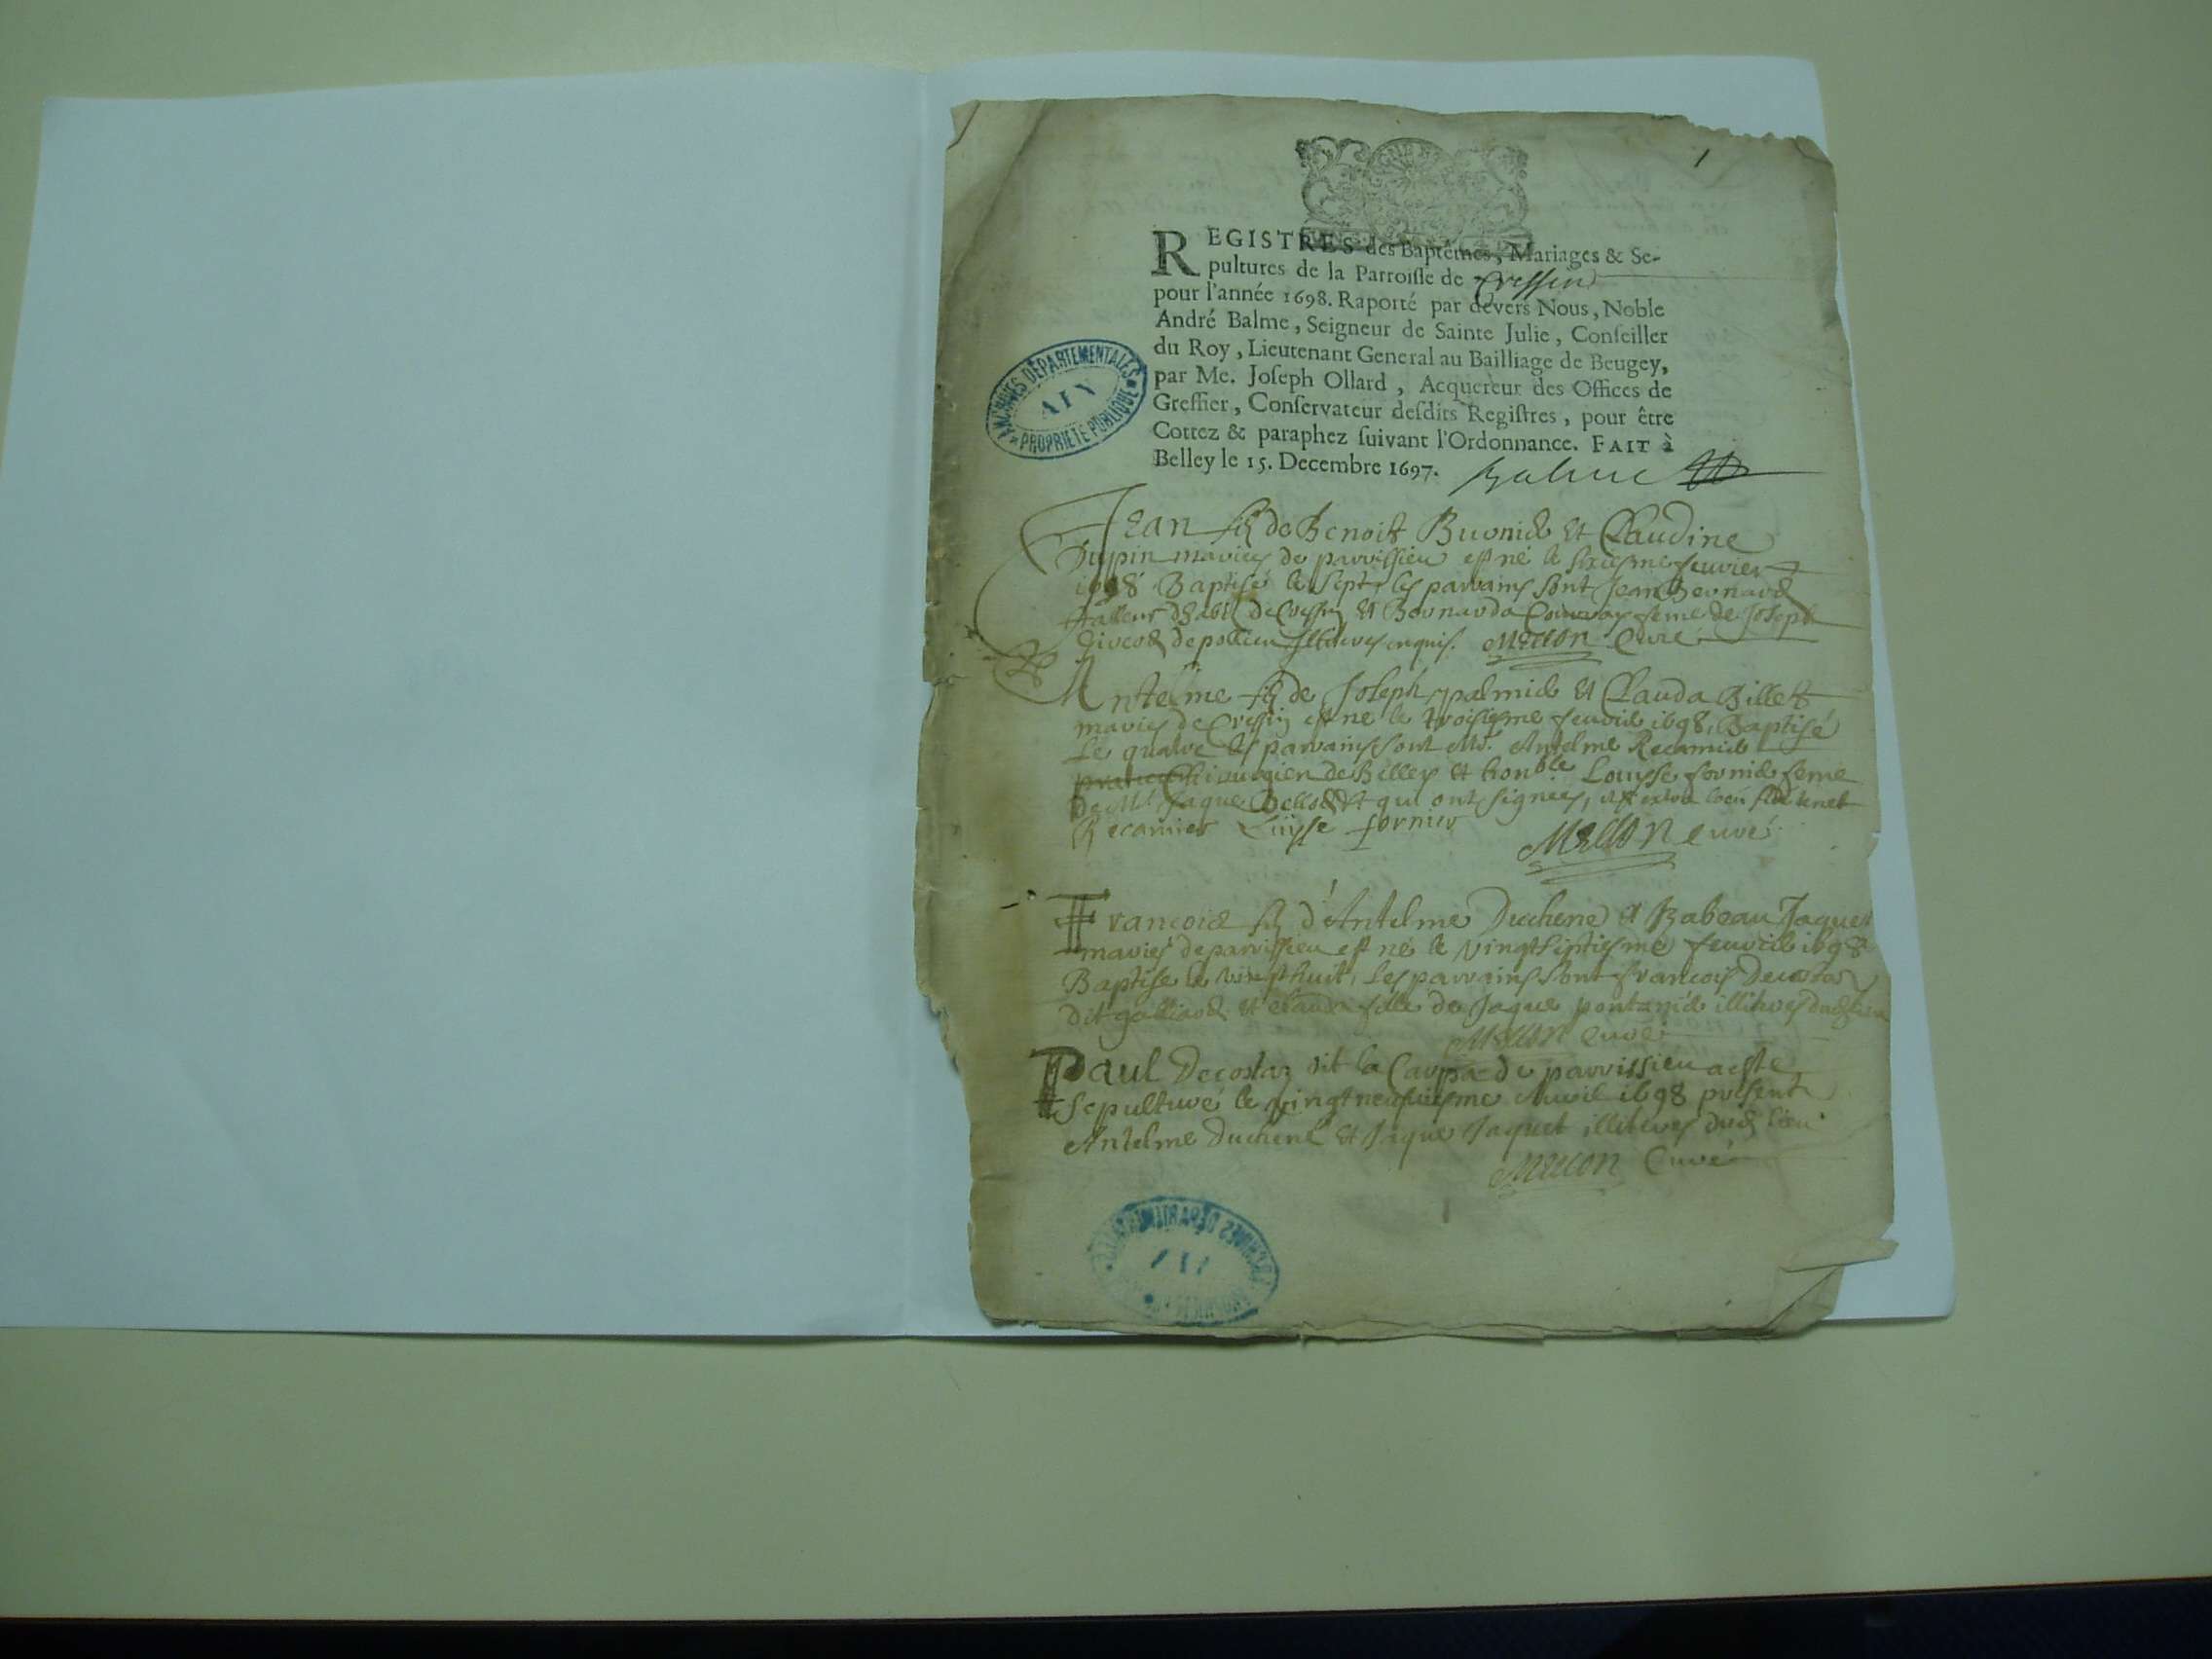 1
REGISTRES des Baptêmes, Mariages & Se-
pultures de la Parroisse de Cressin
pour l'année 1698. Raporté par devers Nous, Noble
André Balme, Seigneur de Sainte Julie, Conseiller
du Roy, Lieutenant General au Bailliage de Beugey,
par Me. Joseph Ollard, Acquereur des Offices de
Greffier, Conservateur desdits Registres, pour être
Cottez & paraphez suivant l'Ordonnance. FAIT à
Belley le 15. Decembre 1697. Balme
ARCHIVES DÉPARTEMENTALES
AIN
PROPRIÉTÉ PUBLIQUE
Jean fil de Benoist et Claudine
maries de parvissieu est né le feuvier
1698 Baptisé le sept les parvains sont Jean Bernard
de Cressin et femme de Joseph
de pollieu enquis. Mellon Curé
Antelme fil de Joseph palmid et Clauda Billet
maries de Cressin est né le troisiesme feuvid 1698, Baptisé
Le quatre les parvains sont Antelme Recamid
Chirurgien de Belley et Louyse fornid feme
de Mr Jaque qui ont signees,
Recamier Luyse fornier
Mellon curé
François fil d'Antelme Duchene et Babeau Jaquet
maries de parvissieu est né le vingtseptiesme feuvril 1698
Baptise le vingt huit, les parvains sont francois Decostaz
dit galliard et clauda fille de Jaque pontanid illiteres
Mellon curé
Paul Decostaz dit la Carpa de parvissieu a esté
sepulturé le vingt neufviesme Auvil 1698 present
Antelme Duchene et Jaque Jaquet illiteres dud lieu
Mellon Curé
ARCHIVES DÉPARTEMENTALES
AIN